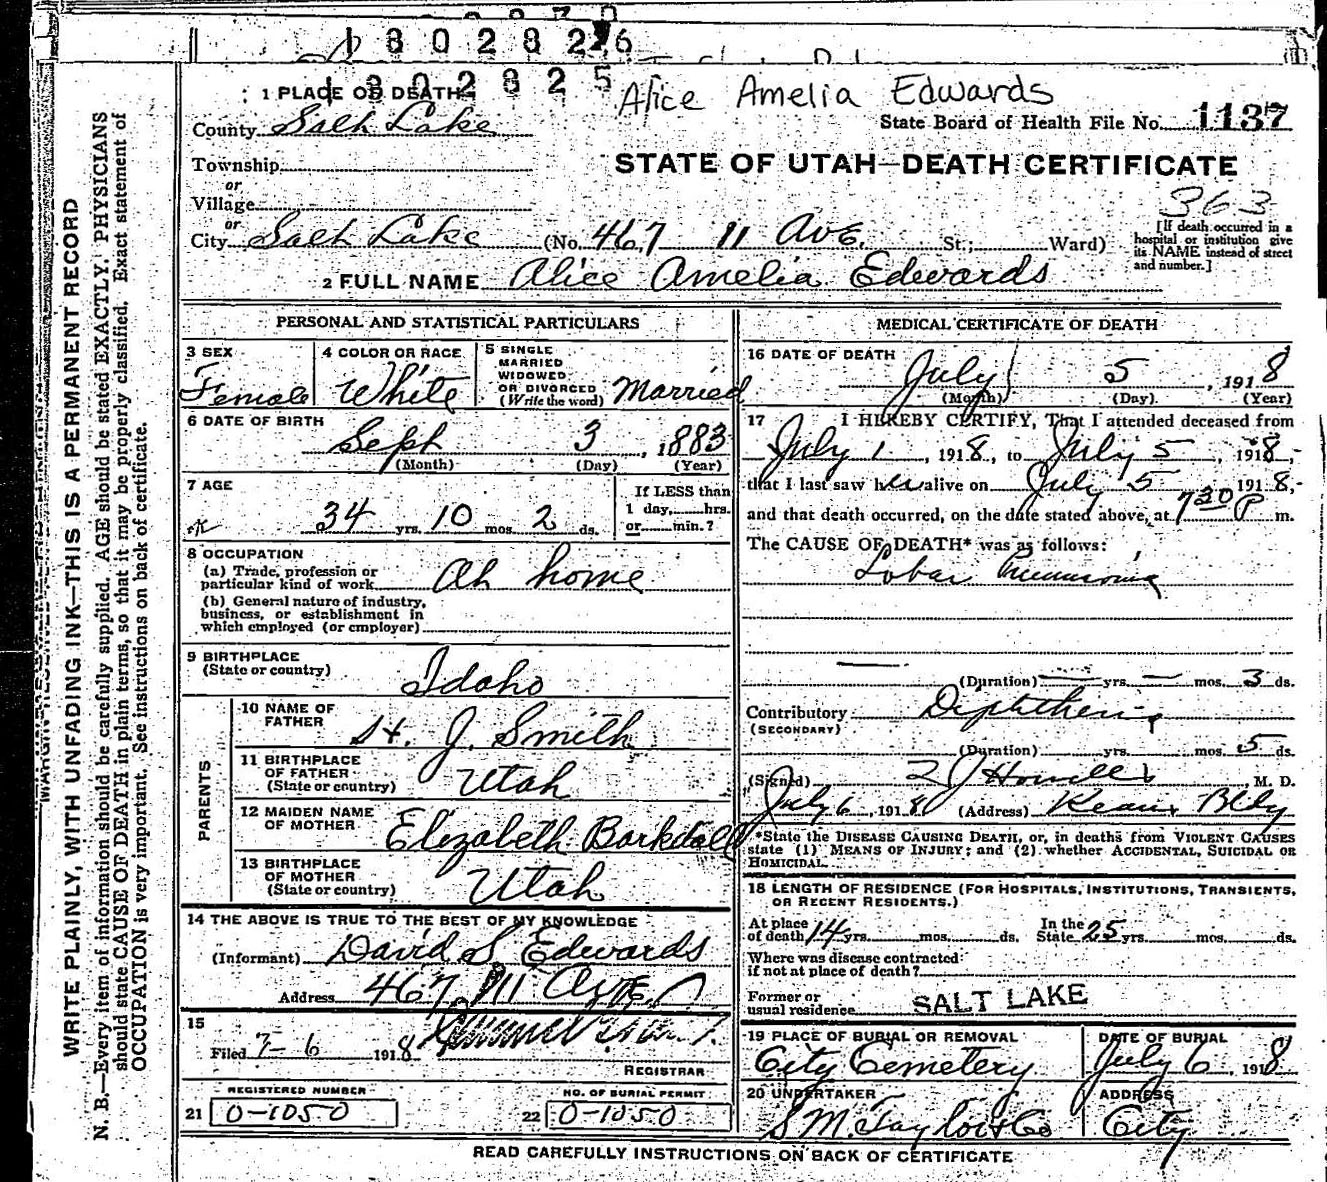 1302826
1302825
Alice Amelia Edwards
1 PLACE OF DEATH
County Salt Lake
State Board of Health File No. 1137
Township
or
Village
or
STATE OF UTAH—DEATH CERTIFICATE
363
City Salt Lake (No. 467 11 Ave. St.; Ward)
[If death occurred in a
hospital or institution give
its NAME instead of street
and number.]
2 FULL NAME Alice Amelia Edwards
PERSONAL AND STATISTICAL PARTICULARS
3 SEX
Female
4 COLOR OR RACE
White
5 SINGLE
MARRIED
WIDOWED
OR DIVORCED
(Write the word) Married
6 DATE OF BIRTH
Sept 3, 1883
(Month) (Day) (Year)
7 AGE
34 yrs. 10 mos. 2 ds.
If LESS than
1 day, hrs.
or min.?
8 OCCUPATION
(a) Trade, profession or
particular kind of work At home
(b) General nature of industry,
business, or establishment in
which employed (or employer)
9 BIRTHPLACE
(State or country) Idaho
PARENTS
10 NAME OF
FATHER J. Smith
11 BIRTHPLACE
OF FATHER
(State or country) Utah
12 MAIDEN NAME
OF MOTHER Elizabeth Barkdall
13 BIRTHPLACE
OF MOTHER
(State or country) Utah
14 THE ABOVE IS TRUE TO THE BEST OF MY KNOWLEDGE
(Informant) David S. Edwards
Address 467 11 Ave
15
Filed 7-6 1918
REGISTRAR
REGISTERED NUMBER
21 0-1050
NO. OF BURIAL PERMIT
22 0-1050
MEDICAL CERTIFICATE OF DEATH
16 DATE OF DEATH
July 5, 1918
(Month) (Day) (Year)
17 I HEREBY CERTIFY, That I attended deceased from
July 1, 1918, to July 5, 1918,
that I last saw her alive on July 5 1918,
and that death occurred, on the date stated above, at 730 P m.
The CAUSE OF DEATH* was as follows:
Lobar Pneumonia
(Duration) yrs. mos. 3 ds.
Contributory Diphtheria
(SECONDARY)
(Duration) yrs. mos. 5 ds.
(Signed) J Howells M. D.
July 6, 1918 (Address) Kearns Bldg
*State the DISEASE CAUSING DEATH, or, in deaths from VIOLENT CAUSES
state (1) MEANS OF INJURY; and (2) whether ACCIDENTAL, SUICIDAL OR
HOMICIDAL.
18 LENGTH OF RESIDENCE (FOR HOSPITALS, INSTITUTIONS, TRANSIENTS,
OR RECENT RESIDENTS.)
At place
of death 14 yrs. mos. ds.
In the
State 25 yrs. mos. ds.
Where was disease contracted
if not at place of death?
Former or
usual residence SALT LAKE
19 PLACE OF BURIAL OR REMOVAL
City Cemetery
DATE OF BURIAL
July 6, 1918
20 UNDERTAKER
S.M. Taylor & Co
ADDRESS
City
READ CAREFULLY INSTRUCTIONS ON BACK OF CERTIFICATE
WRITE PLAINLY, WITH UNFADING INK—THIS IS A PERMANENT RECORD
N. B.—Every item of information should be carefully supplied. AGE should be stated EXACTLY. PHYSICIANS
should state CAUSE OF DEATH in plain terms, so that it may be properly classified. Exact statement of
OCCUPATION is very important. See instructions on back of certificate.